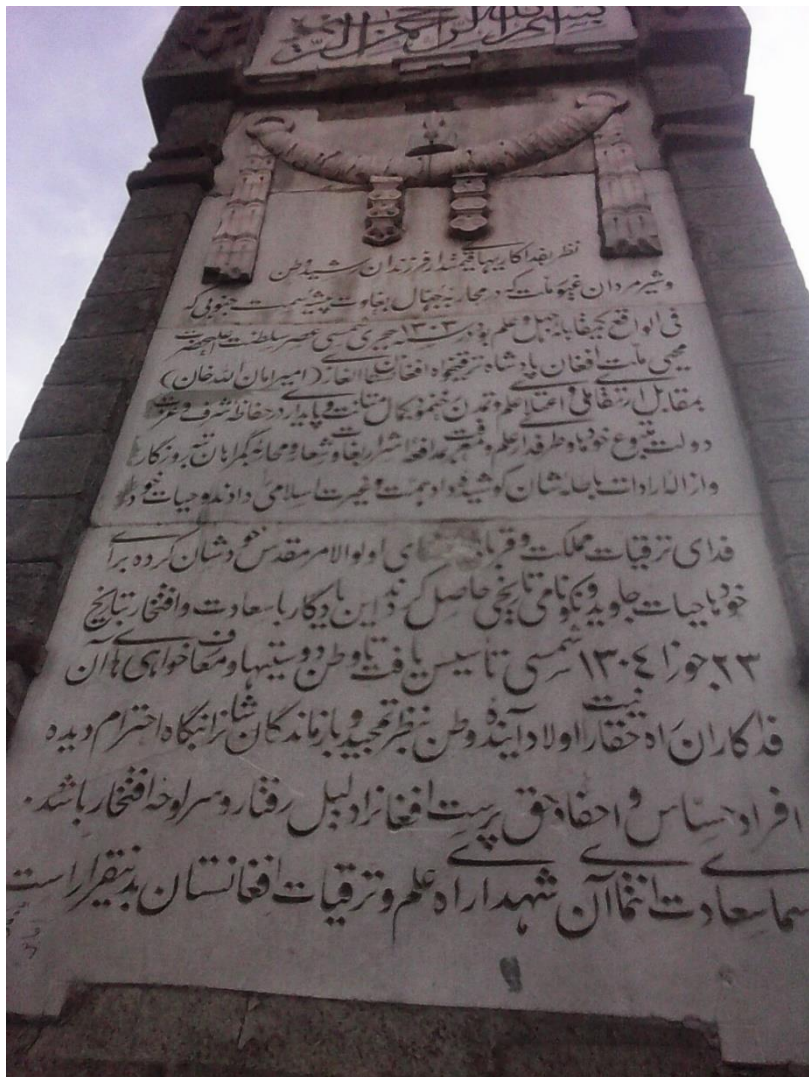 بسم الله الرحمن الرحیم
نظر بفداکاریهای قیمتدار فرزندان رشید وطن
و شیرمردان غیور ملت که در محاربهٔ جهال بغاوت پیشهٔ سمت جنوبی که
فی الواقع یک مقابلهٔ جهل و علم بود در سنه ۱۳۰۳ هجری شمسی عصر سلطنت اعلیحضرت
محیی ملت افغان پادشاه ترقیخواه افغانستان الغازی (امیر امان الله خان)
بمقابل ارتقای ملی و اعتلای علم و تمدن بکمال متانت و پایداری در حفاظهٔ شرف و عزت
دولت متبوع خودها و طرفداری علم و معرفت بمدافعهٔ اشرار بغاوت شعار و محاربهٔ گمراهان تیره روزگار
و ازالهٔ ارادات باطلهٔ شان کوشیده داد همت و غیرت اسلامی دادند و حیات خود را
فدای ترقیات مملکت و اولوالامر مقدس خودشان کرده برای
خودها حیات جاوید و نکونامی تاریخی حاصل کردند این یادگار با سعادت و افتخار بتاریخ
۲۳ جوزا ۱۳۰٤ شمسی تاسیس یافت تا وطن دوستیها و معارف خواهی های آن
فداکاران راه حقانیت را اولاد آیندهٔ وطن بنظر تمجید و بازماندگان شانرا بنگاه احترام دیده
افراد حساس و احفاد حق پرست افغانرا دلیل رفتار و سرلوحهٔ افتخار باشد.
اسمای سعادت انتمای آن شهدای راه علم و ترقیات افغانستان بدینقرار است